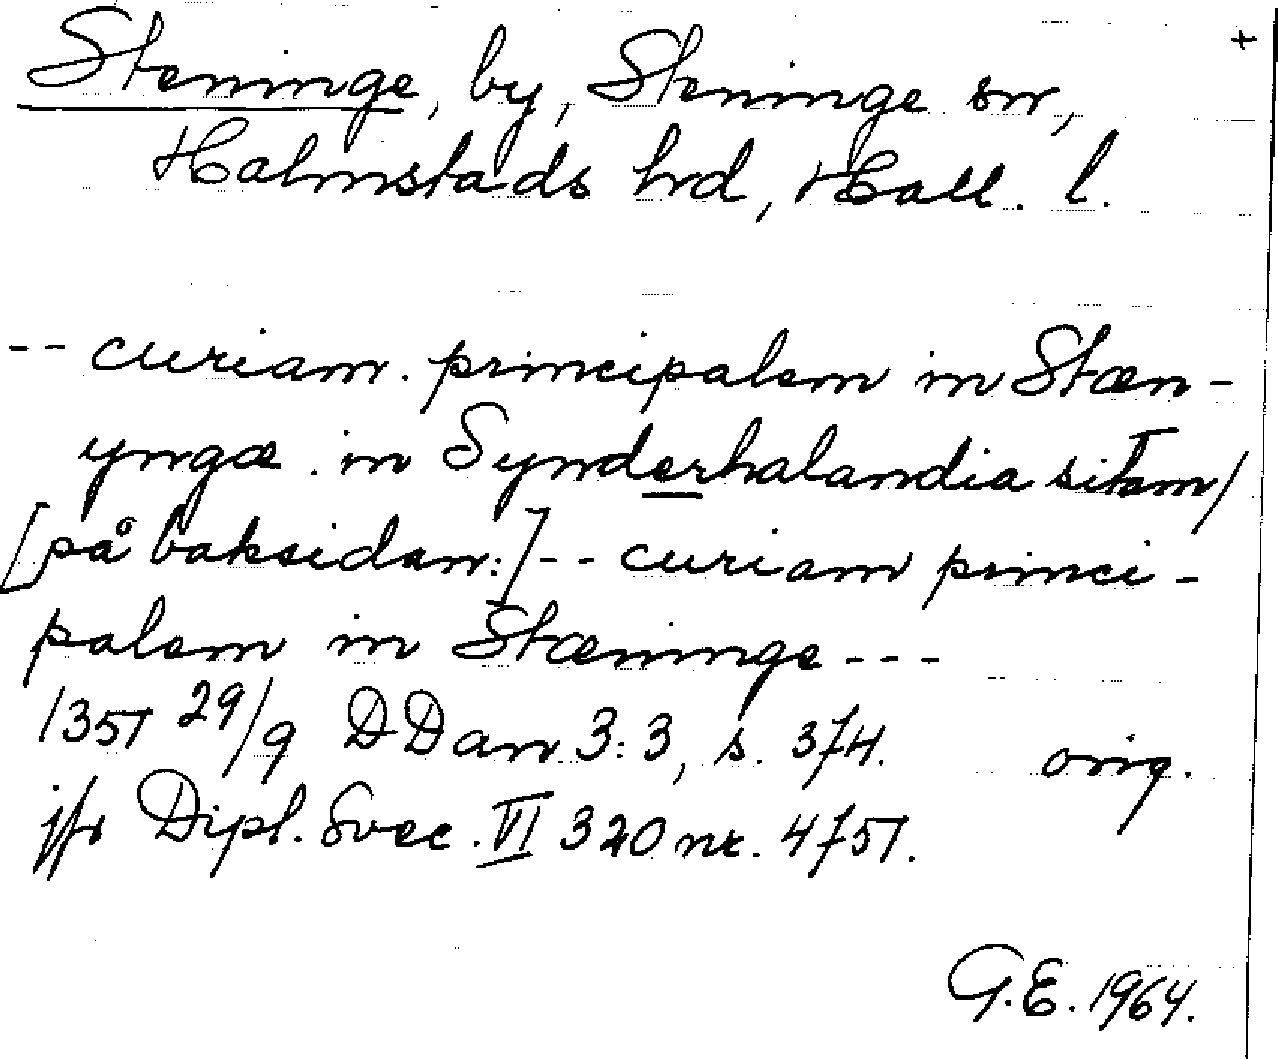 Steninge, by, Steninge sn, +
Halmstads hrd, Hall. l.
-- curiam principalem in Stæn-
yngæ in Synderhalandia sitam/
[på baksidan:] -- curiam princi-
palem in Stæninge ---
1351 29/9 DDan 3:3, s. 374. orig.
jfr Dipl. Svec. VI 320 nr. 4751.
G.E. 1964.